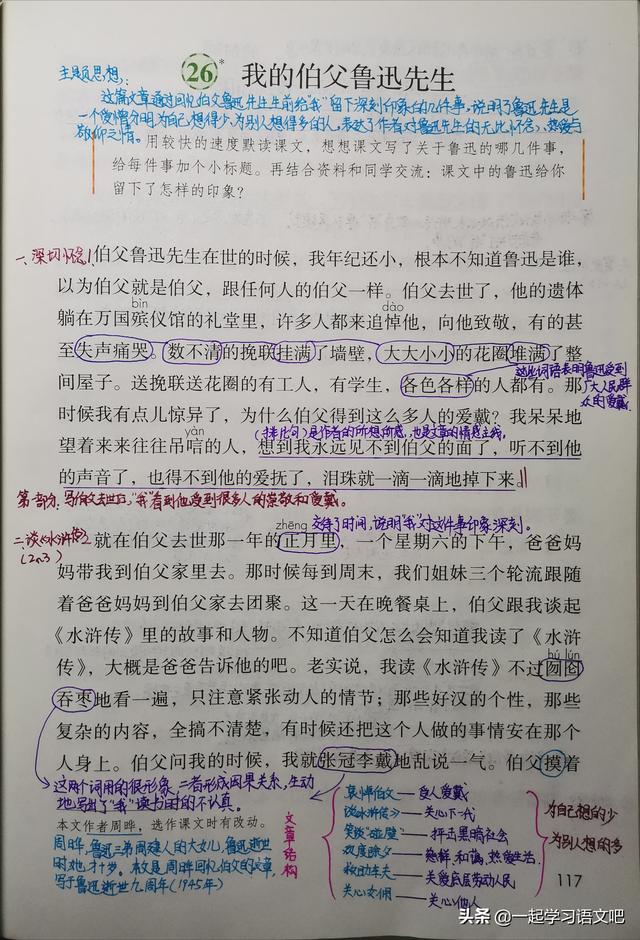 主题思想：
26* 我的伯父鲁迅先生
这篇文章通过回忆伯父鲁迅先生生前给“我”留下深刻印象的几件事，说明了鲁迅先生是
一个爱憎分明，为自己想得少，为别人想得多的人，表达了作者对鲁迅先生的无比怀念、热爱与
敬仰之情。
用较快的速度默读课文，想想课文写了关于鲁迅的哪几件事，
给每件事加个小标题。再结合资料和同学交流：课文中的鲁迅给你
留下了怎样的印象？
一、深切怀念
1 伯父鲁迅先生在世的时候，我年纪还小，根本不知道鲁迅是谁，
以为伯父就是伯父，跟任何人的伯父一样。伯父去世了，他的遗体
bìn dào
躺在万国殡仪馆的礼堂里，许多人都来追悼他，向他致敬，有的甚
至失声痛哭。数不清的挽联挂满了墙壁，大大小小的花圈堆满了整
间屋子。送挽联送花圈的有工人，有学生，各色各样的人都有。那
这些词语表明鲁迅受到
广大人民群
众的爱戴
时候我有点儿惊异了，为什么伯父得到这么多人的爱戴？我呆呆地
yàn
（排比句）是作者的所想所感，也是文章的情感主线。
望着来来往往吊唁的人，想到我永远见不到伯父的面了，听不到他
的声音了，也得不到他的爱抚了，泪珠就一滴一滴地掉下来。
第一部分：写伯父去世后，“我”看到他受到很多人的崇敬和爱戴。
zhēng
交待了时间，说明“我”对这件事印象深刻。
二、谈《水浒传》
（2~3）
2 就在伯父去世那一年的正月里，一个星期六的下午，爸爸妈
妈带我到伯父家里去。那时候每到周末，我们姐妹三个轮流跟随
着爸爸妈妈到伯父家去团聚。这一天在晚餐桌上，伯父跟我谈起
《水浒传》里的故事和人物。不知道伯父怎么会知道我读了《水浒
hú lún
传》，大概是爸爸告诉他的吧。老实说，我读《水浒传》不过囫囵
吞枣地看一遍，只注意紧张动人的情节；那些好汉的个性，那些
复杂的内容，全搞不清楚，有时候还把这个人做的事情安在那个
人身上。伯父问我的时候，我就张冠李戴地乱说一气。伯父摸着
这两个词用的很形象，二者形成因果关系，生动
地写出了“我”读书时的不认真。
本文作者周晔，选作课文时有改动。
周晔，鲁迅三弟周建人的大女儿，鲁迅逝世
时她才十岁。本文是周晔回忆伯父的文章，
写于鲁迅逝世九周年（1945年）
文章结构
哀悼伯父——受人爱戴
谈《水浒传》——关心下一代
笑谈“碰壁”——抨击黑暗社会
救助车夫——关爱底层劳动人民
关心女佣——关心他人
为自己想的少
为别人想的多
117
头条 @一起学习语文吧